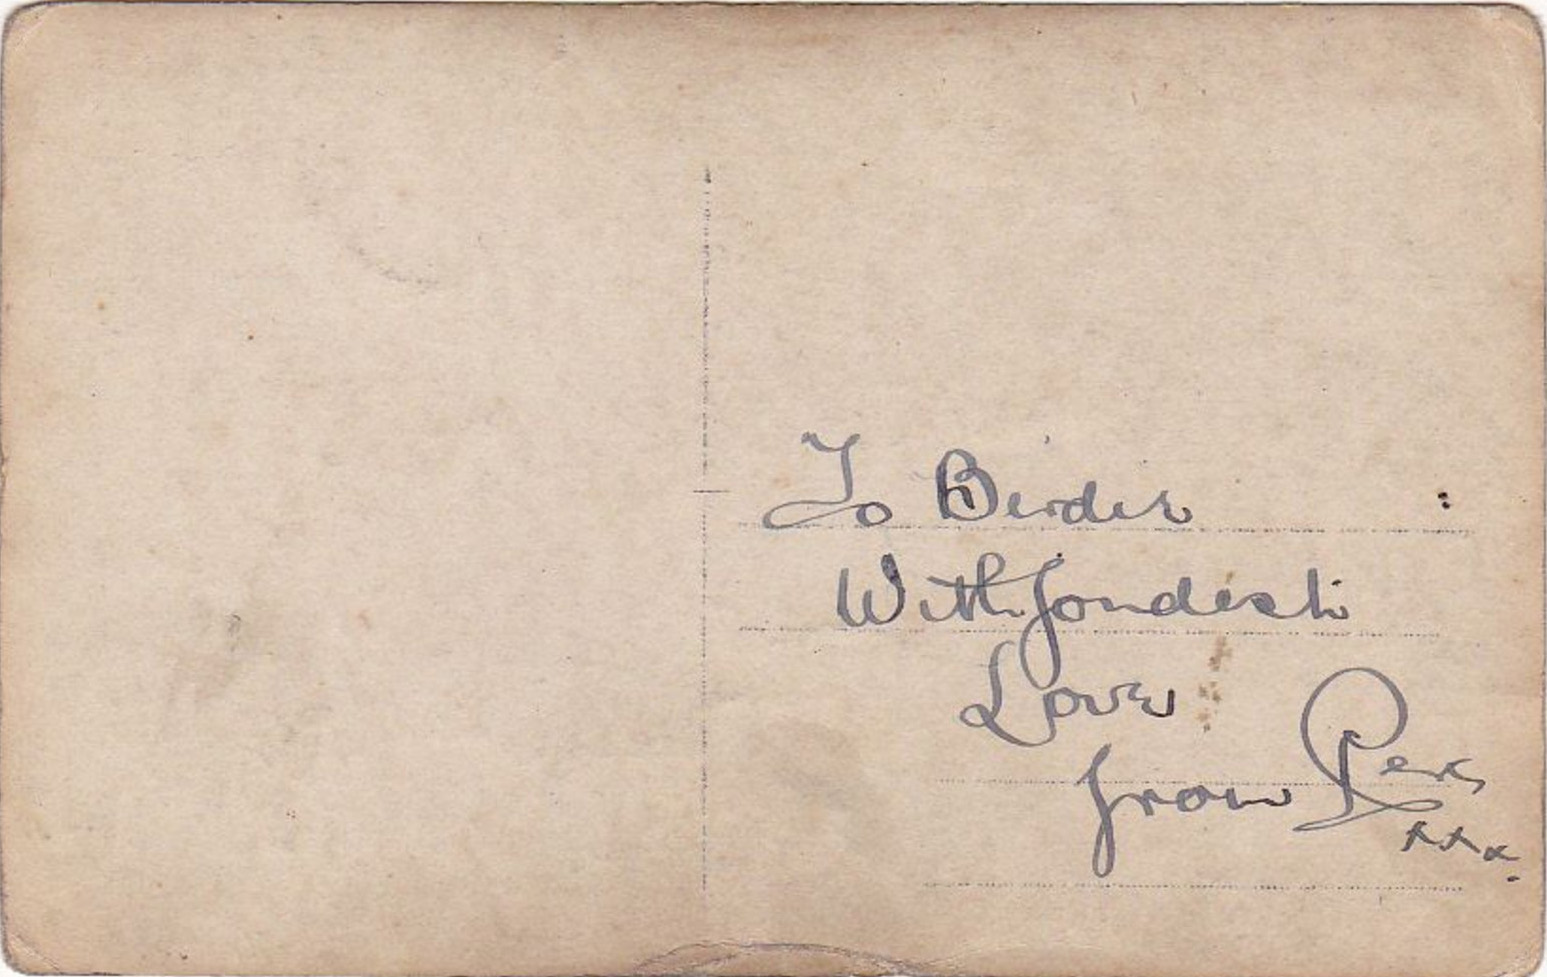 To Birdie
With fondest
Love
from Perc
xxx.